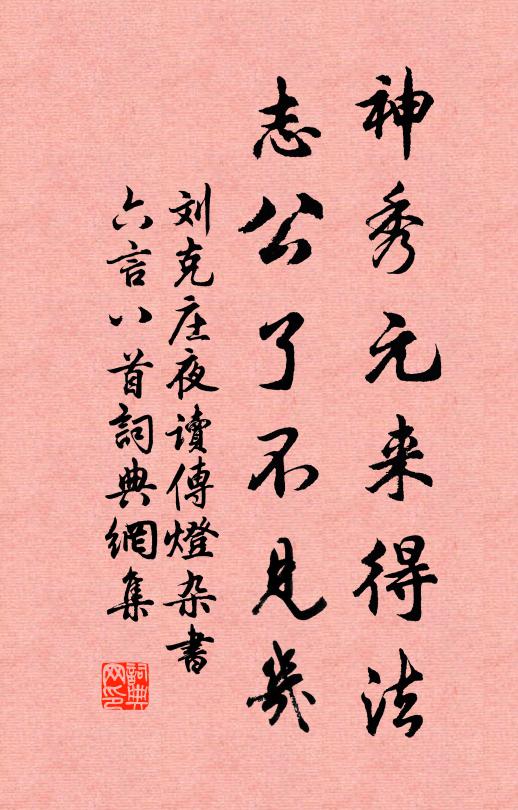 神秀元来得法
志公了不见几
刘克庄夜读傳燈杂書
六言八首詞典網集
詞典网印